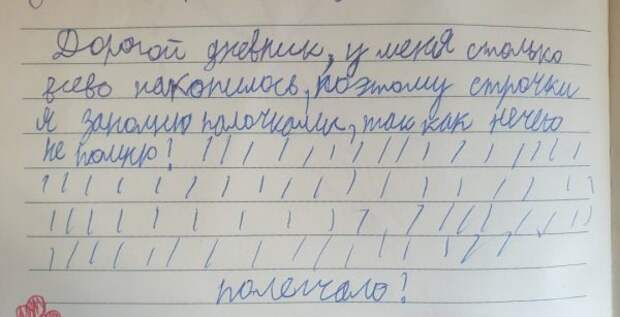 Дорогой дневник, у меня столько
всево накопилось, поэтому строчки
я заполню палочками, так как нечего
не помню! | | | | | | | | | | | | | | | | | | | |
| | | | | | | | | | | | | | | | | | | | | |
| | | | | | | | | | | | | | | | | | | |
| | | | | | | | | | | | | | | | | | | |
полегчало!